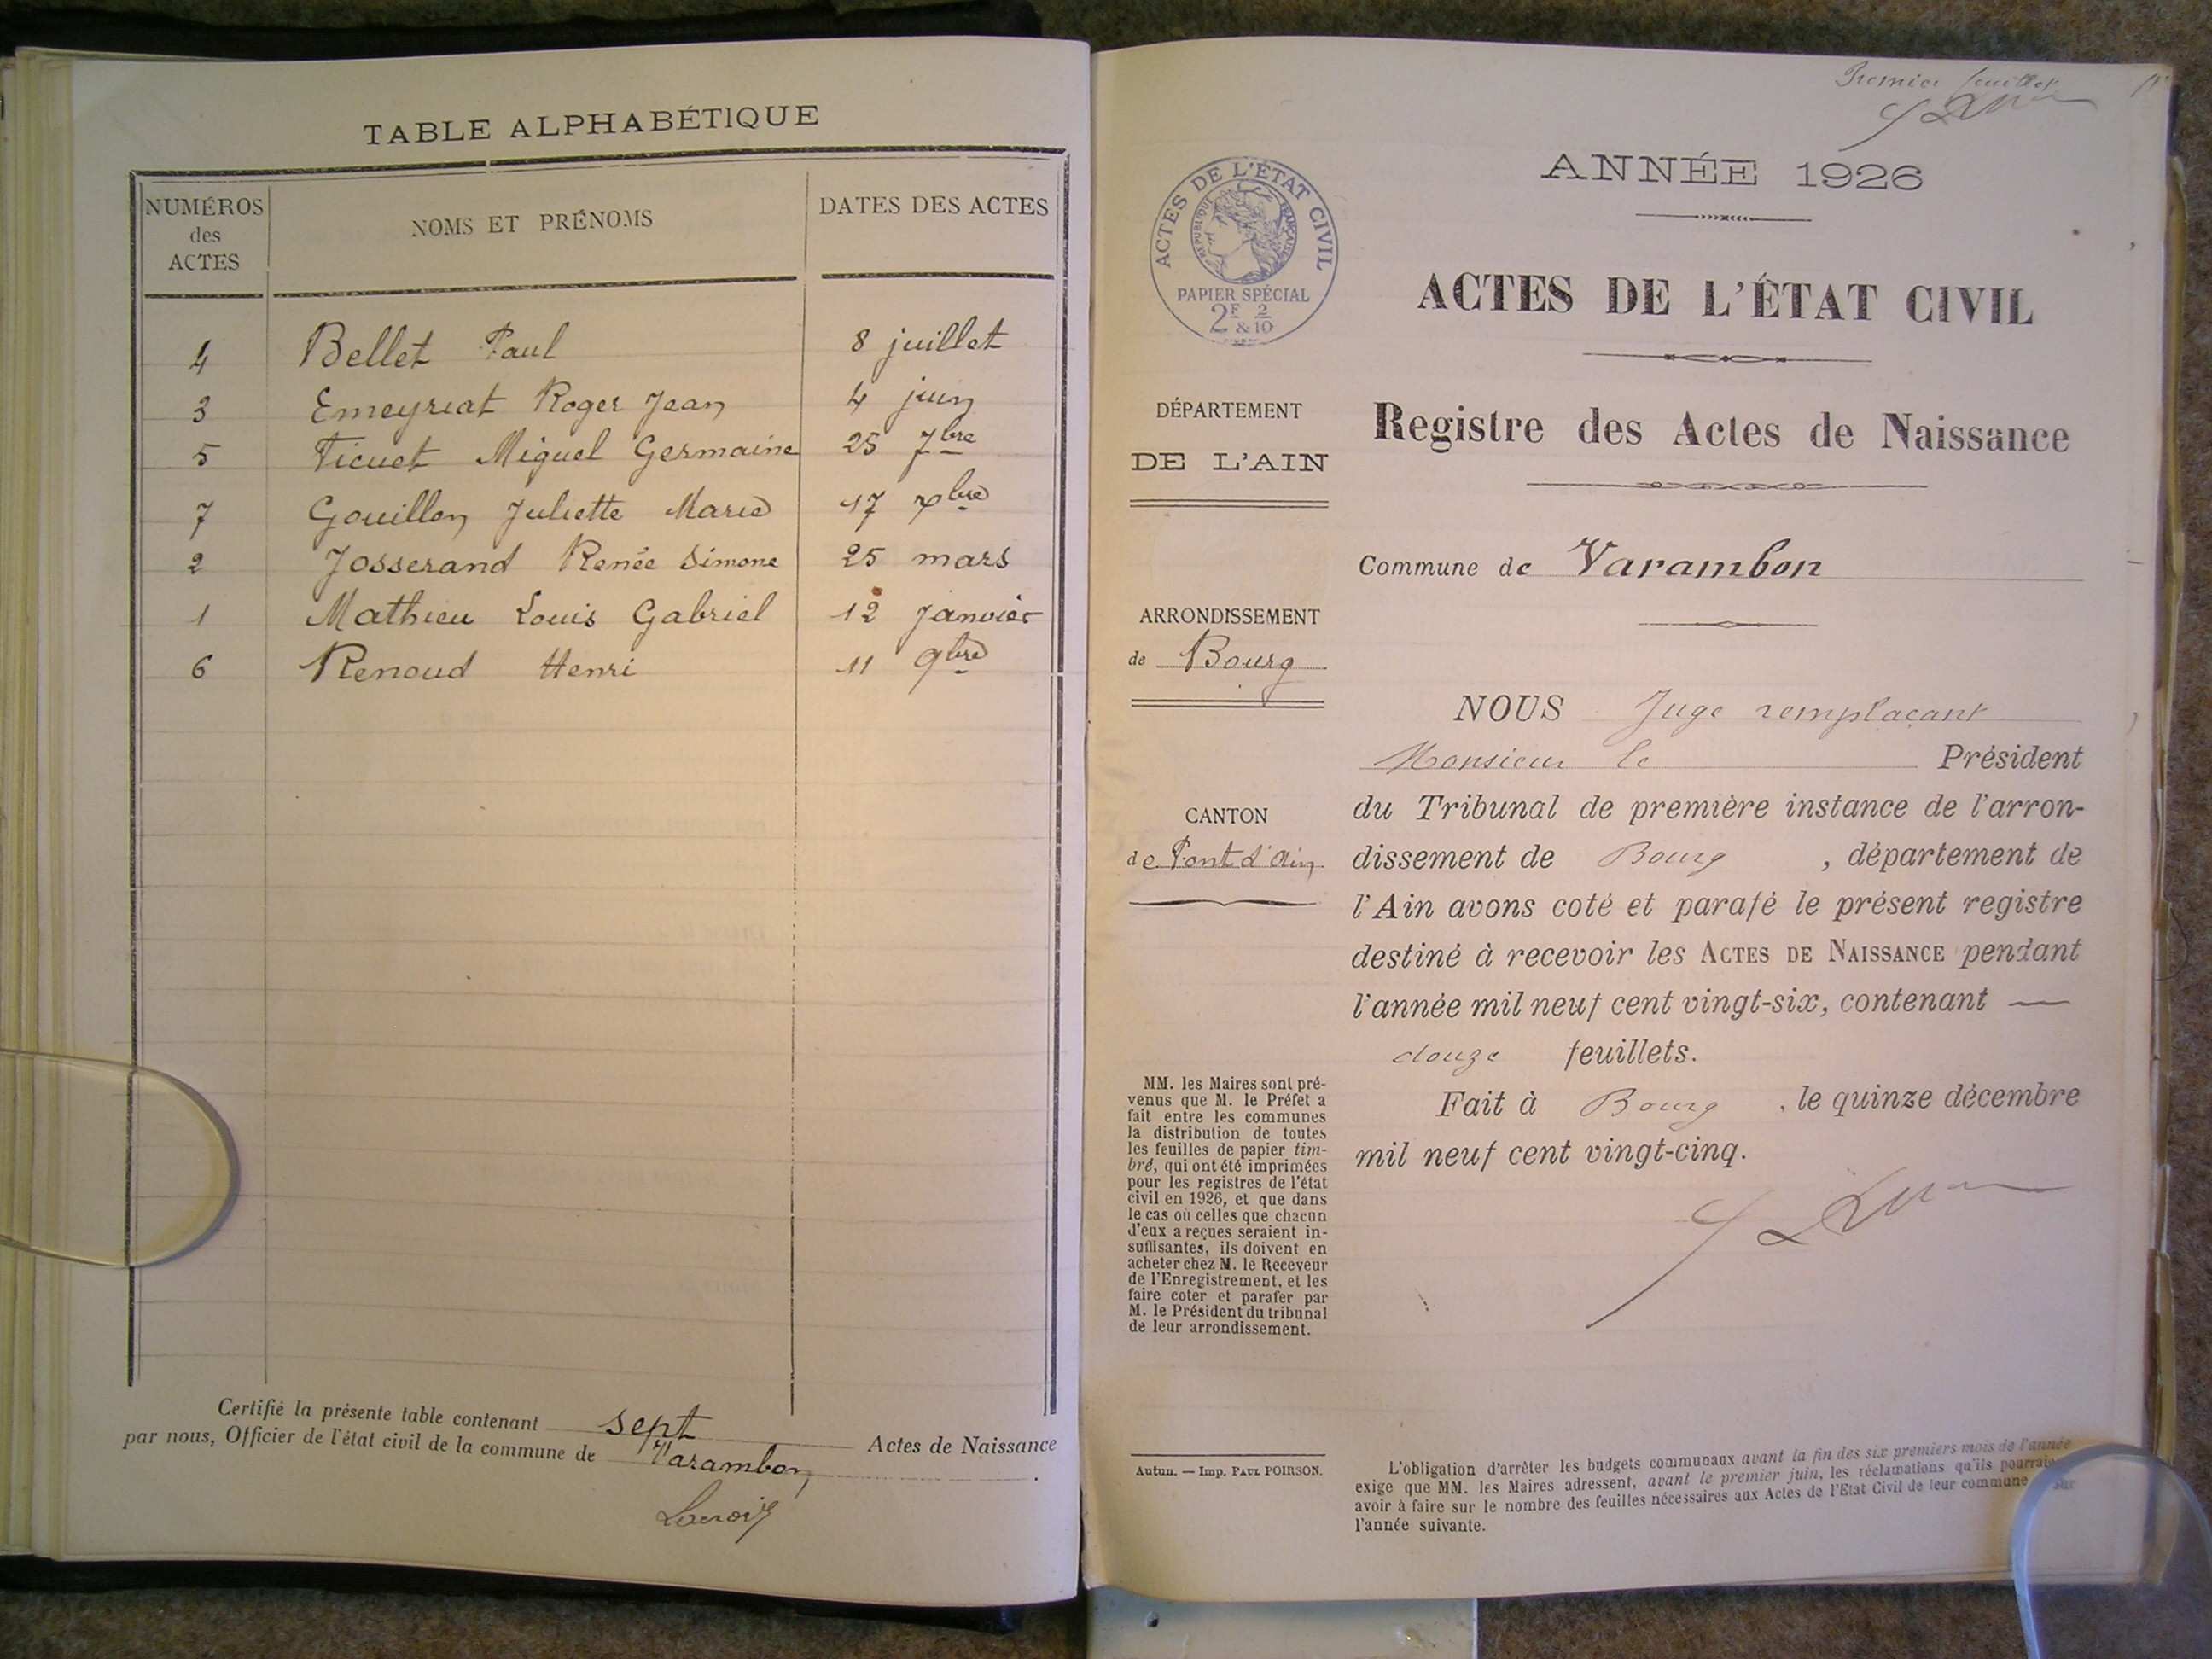 TABLE ALPHABÉTIQUE
NUMÉROS des ACTES
NOMS ET PRÉNOMS
DATES DES ACTES
4 Bellet Paul 8 juillet
3 Emeyriat Roger Jean 4 juin
5 Ticuet Miguel Germaine 25 7bre
7 Gouillon Juliette Marie 17 xbre
2 Josserand Renée Simone 25 mars
1 Mathieu Louis Gabriel 12 Janvier
6 Renoud Henri 11 9bre
Certifié la présente table contenant sept Actes de Naissance
par nous, Officier de l'état civil de la commune de Varambon.
Lacroix
Premier feuillet
ANNÉE 1926
ACTES DE L'ÉTAT CIVIL
RÉPUBLIQUE FRANÇAISE
PAPIER SPÉCIAL
2F & 2/10
ACTES DE L'ÉTAT CIVIL
DÉPARTEMENT
DE L'AIN
Registre des Actes de Naissance
Commune de Varambon
ARRONDISSEMENT
de Bourg
CANTON
de Pont d'Ain
NOUS Juge remplaçant
Monsieur le Président
du Tribunal de première instance de l'arron-
dissement de Bourg, département de
l'Ain avons coté et parafé le présent registre
destiné à recevoir les ACTES DE NAISSANCE pendant
l'année mil neuf cent vingt-six, contenant —
douze feuillets.
Fait à Bourg, le quinze décembre
mil neuf cent vingt-cinq.
MM. les Maires sont pré-
venus que M. le Préfet a
fait entre les communes
la distribution de toutes
les feuilles de papier tim-
bré, qui ont été imprimées
pour les registres de l'état
civil en 1926, et que dans
le cas où celles que chacun
d'eux a reçues seraient in-
suffisantes, ils doivent en
acheter chez M. le Receveur
de l'Enregistrement, et les
faire coter et parafer par
M. le Président du tribunal
de leur arrondissement.
Autun. — Imp. PAUL POIRSON.
L'obligation d'arrêter les budgets communaux avant la fin des six premiers mois de l'année
exige que MM. les Maires adressent, avant le premier juin, les réclamations qu'ils
avoir à faire sur le nombre des feuilles nécessaires aux Actes de l'Etat Civil de leur commune
l'année suivante.